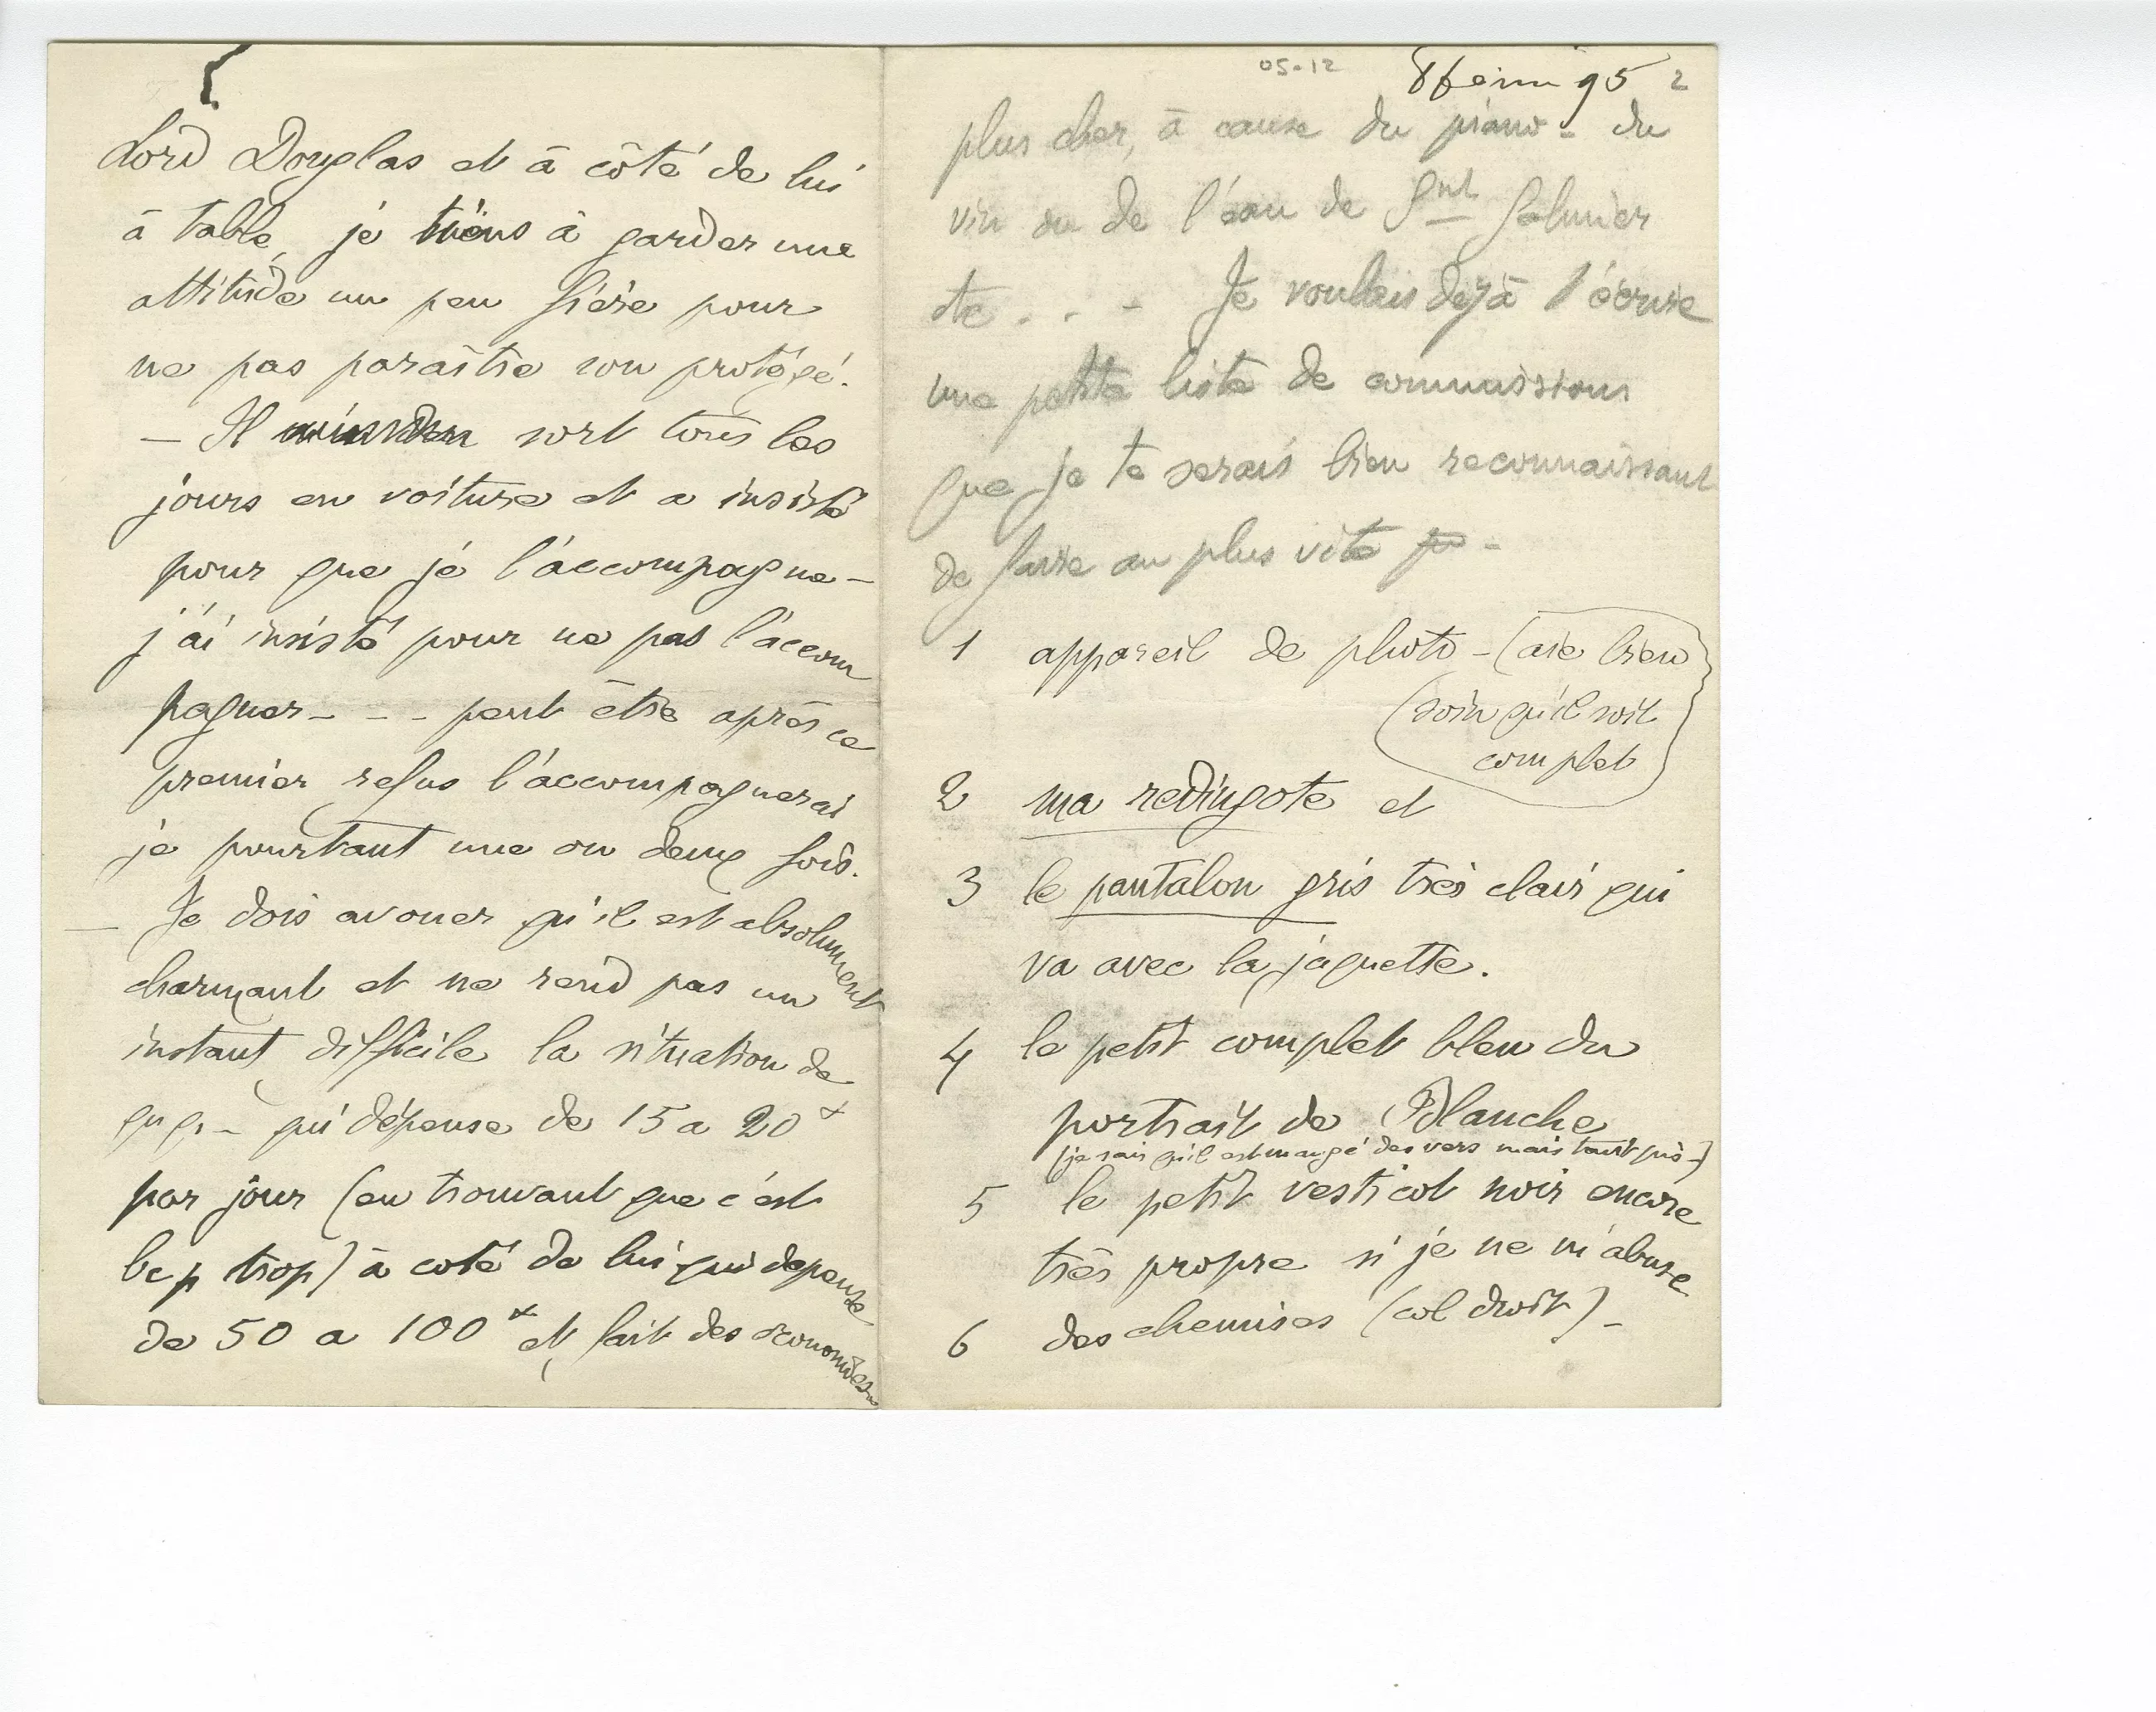 Lord Douglas et à côté de lui
à table, je tiens à garder une
attitude un peu fière pour
ne pas paraître son protégé.
— Il sort tous les
jours en voiture et a insisté
pour que je l'accompagne —
j'ai insisté pour ne pas l'accom
pagner - - - peut être après ce
premier refus l'accompagnerai
je pourtant une ou deux fois.
— Je dois avouer qu'il est absolument
charmant et ne rend pas un
instant difficile la situation de
qq. - qui dépense de 15 a 20
par jour (en trouvant que c'est
bcp trop) à coté de lui qui depense
de 50 a 100 et fait des économies
05-12
8 95 2
plus cher, à cause du piano - du
vin ou de l'eau de Snt Galmier
etc . . - Je voulais dejà t'écrire
une petite liste de commissions
que je te serais bien reconnaissant
de faire au plus vite -
1 appareil de photo - (aie bien
(soin qu'il soit
complet
2 ma redingote et
3 le pantalon gris très clair qui
va avec la jaquette.
4 le petit complet bleu du
portrait de Blanche
(je sais qu'il est mangé des vers mais tant pis -)
5 le petit vesticot noir encore
très propre si je ne m'abuse
6 des chemises (col droit) -